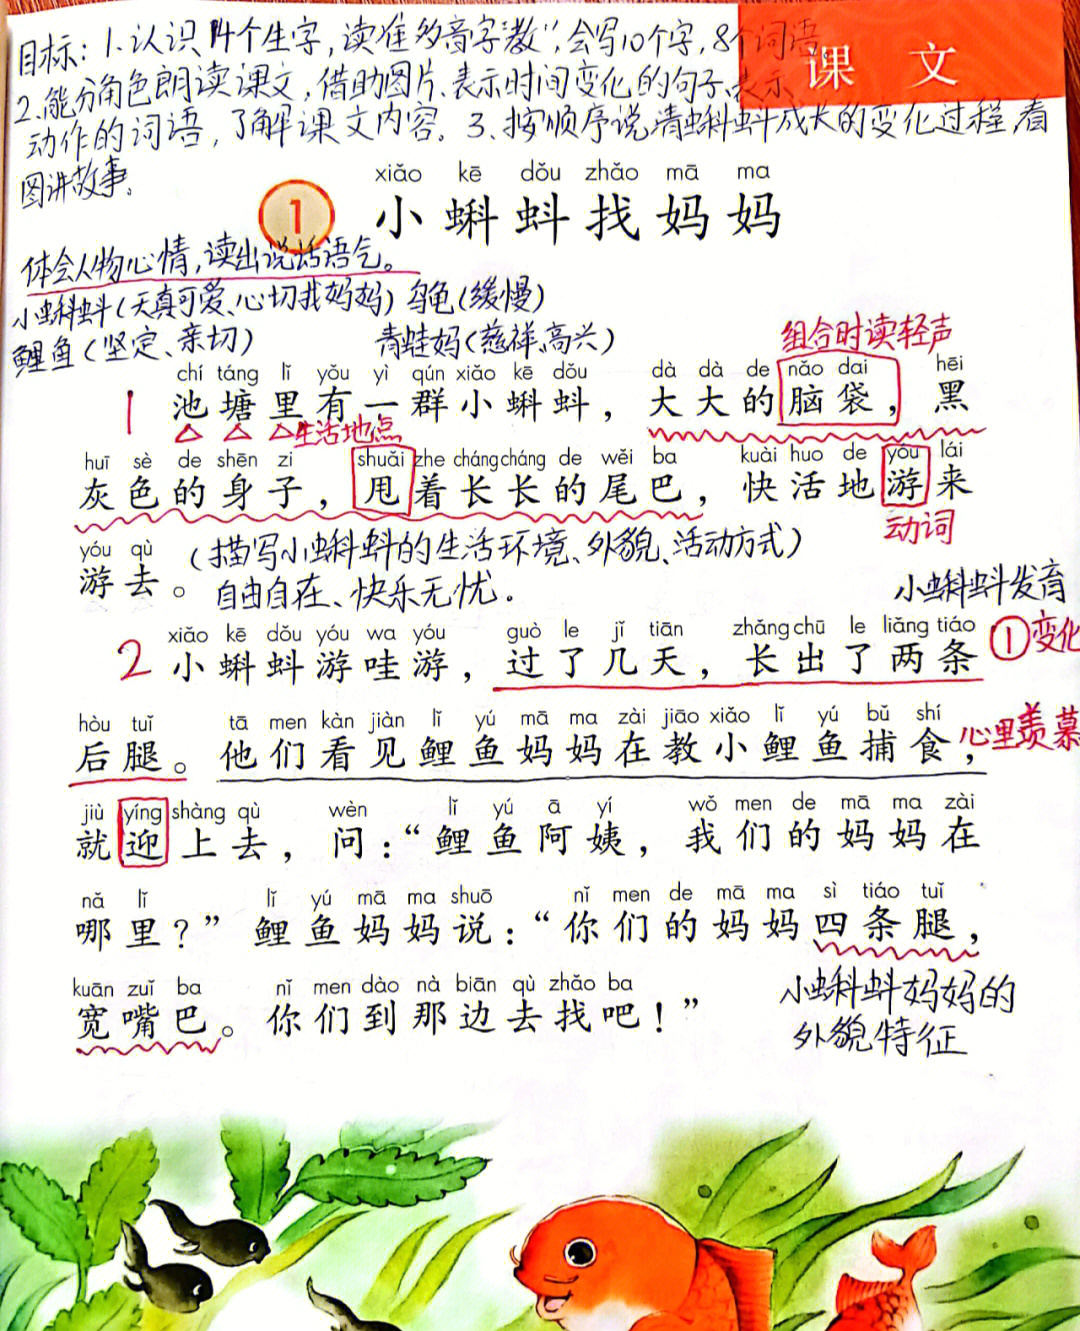 目标：1.认识14个生字，读准多音字“教”，会写10个字，8个词语
课 文
2.能分角色朗读课文，借助图片、表示时间变化的句子、表示
动作的词语，了解课文内容。3、按顺序说清蝌蚪成长的变化过程，看
图讲故事。
xiǎo kē dǒu zhǎo mā ma
1 小蝌蚪找妈妈
体会人物心情，读出说话语气。
小蝌蚪（天真可爱、心切找妈妈）乌龟（缓慢）
鲤鱼（坚定、亲切） 青蛙妈（慈祥、高兴）
组合时读轻声
chí táng lǐ yǒu yì qún xiǎo kē dǒu dà dà de nǎo dai hēi
1 池塘里有一群小蝌蚪，大大的脑袋，黑
生活地点
huī sè de shēn zi shuǎi zhe cháng cháng de wěi ba kuài huo de yóu lái
灰色的身子，甩着长长的尾巴，快活地游来
动词
yóu qù
游去。
（描写小蝌蚪的生活环境、外貌、活动方式）
自由自在、快乐无忧.
小蝌蚪发育
①变化
xiǎo kē dǒu yóu wa yóu guò le jǐ tiān zhǎng chū le liǎng tiáo
2 小蝌蚪游哇游，过了几天，长出了两条
hòu tuǐ tā men kàn jiàn lǐ yú mā ma zài jiāo xiǎo lǐ yú bǔ shí
后腿。他们看见鲤鱼妈妈在教小鲤鱼捕食，
心里羡慕
jiù yíng shàng qù wèn lǐ yú ā yí wǒ men de mā ma zài
就迎上去，问：“鲤鱼阿姨，我们的妈妈在
nǎ lǐ lǐ yú mā ma shuō nǐ men de mā ma sì tiáo tuǐ
哪里？”鲤鱼妈妈说：“你们的妈妈四条腿，
kuān zuǐ ba nǐ men dào nà biān qù zhǎo ba
宽嘴巴。你们到那边去找吧！”
小蝌蚪妈妈的
外貌特征